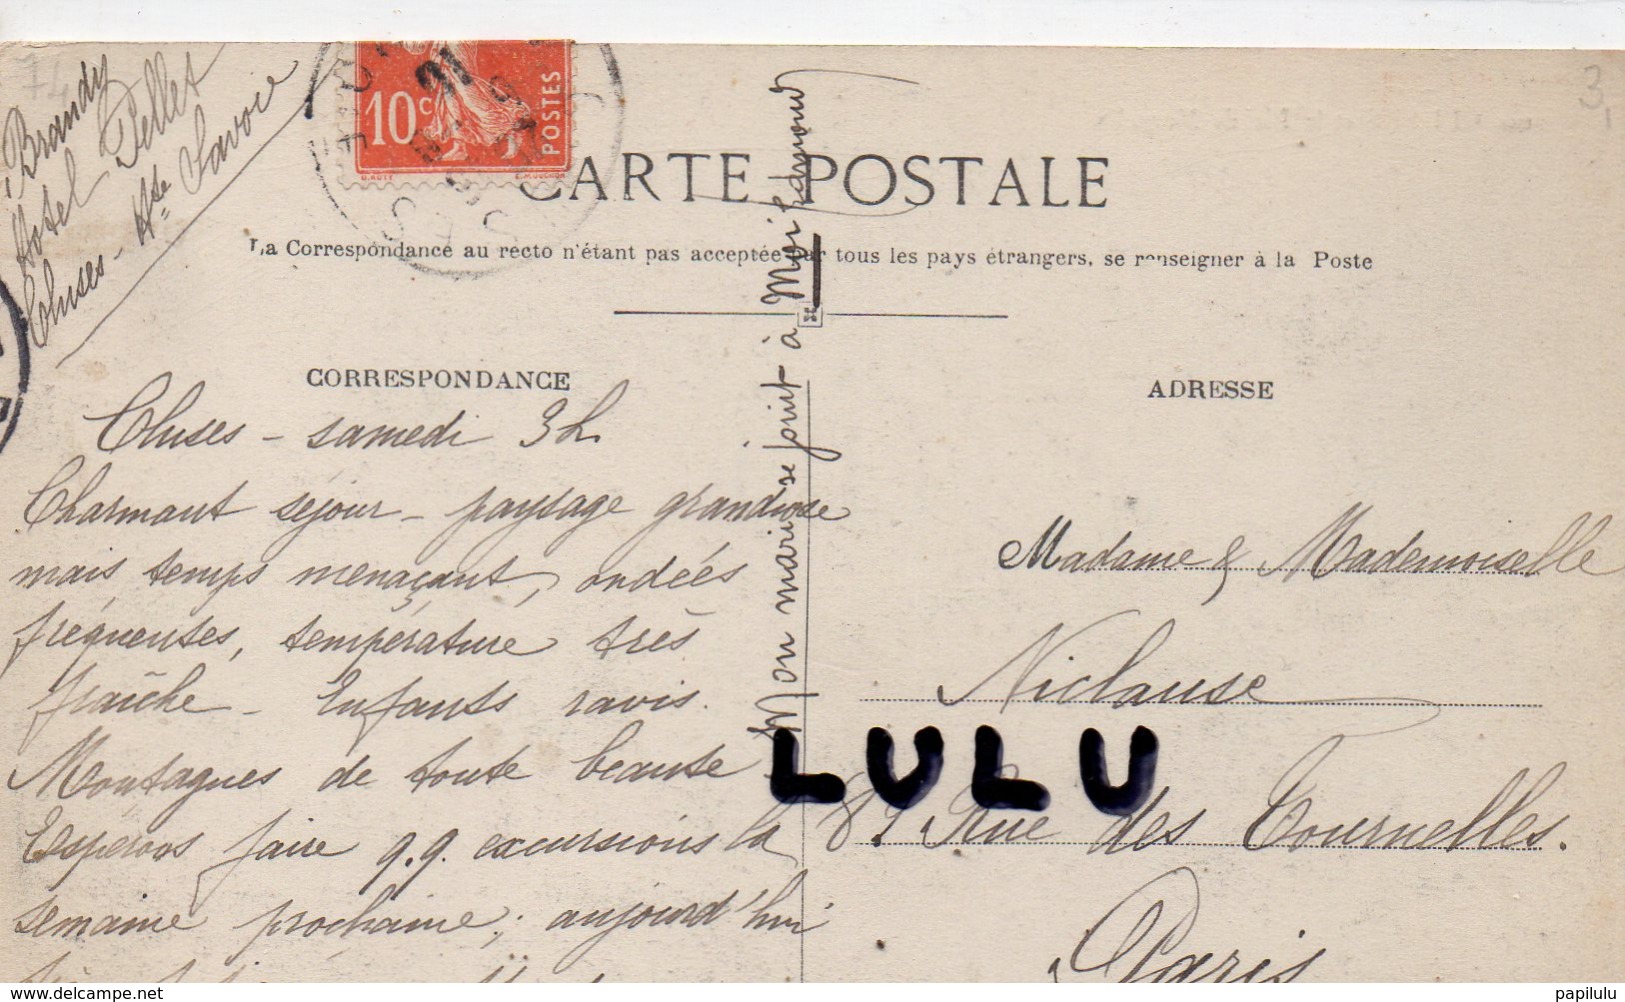 Brandy
Hotel Pellet
Cluses - Hte Savoie
10c
POSTES
CARTE POSTALE
La Correspondance au recto n'étant pas acceptée par tous les pays étrangers, se renseigner à la Poste
CORRESPONDANCE
ADRESSE
Cluses - samedi 3h
Charmant séjour - paysage grandiose
mais temps menaçant, ondées
fréquentes, température très
fraîche - Enfants ravis.
Montagnes de toute beauté
Espérons faire q.q. excursions la
semaine prochaine; aujourd'hui
Mon mari se joint à Moi
Madame & Mademoiselle
Niclausse
Rue des Tournelles.
Paris
LULU
74
3
delcampe.net
papilulu